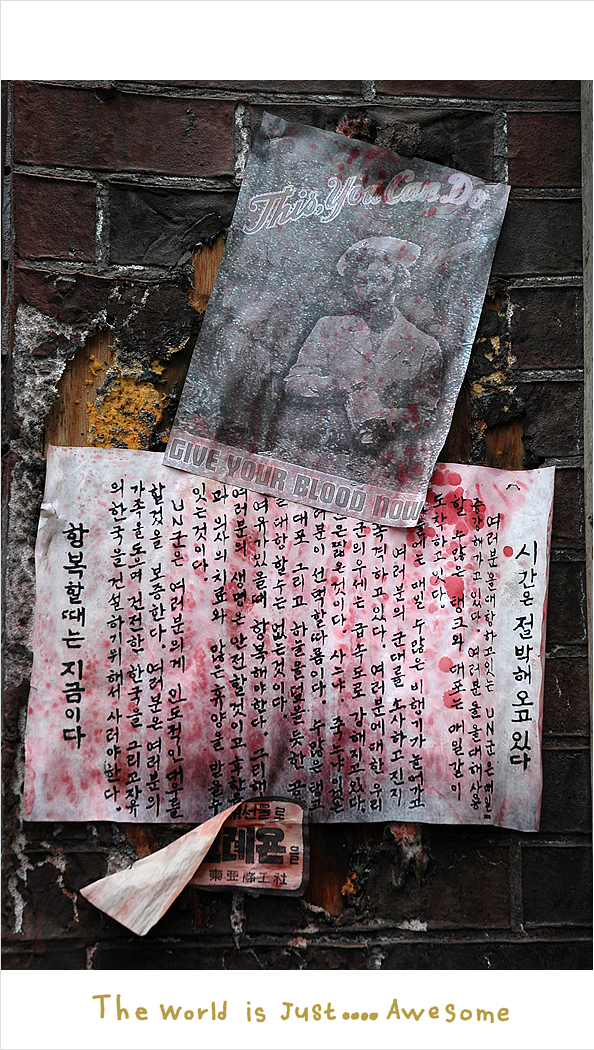 This, You Can Do
GIVE YOUR BLOOD NOW
시간은 절박해 오고 있다
여러분을 대항하고 있는 UN군은 매일
증강해가고 있다. 여러분을 대해 사용
할 수많은 탱크와 대포는 매일같이
도착하고 있다.
에는 매일 수많은 비행기가 늘어가고
여러분의 군대를 소사하고 진지
폭격하고 있다. 여러분에 대한 우리
군의 우세는 급속도로 강해지고 있다.
은 짧은 것이다. 사느냐 죽느냐 이것은
러분이 선택할 따름이다. 수많은 탱크
대포 그리고 하늘을 덮을 듯한 공
대항할 수는 없는 것이다.
여유가 있을 때 항복해야 한다. 그리해
여러분의 생명은 안전할 것이고 후한
과 의사의 치료와 많은 휴양을 받을 수
잇는 것이다.
UN군은 여러분의게 인도적인 대우를
할 것을 보증한다. 여러분은 여러분의
가족을 도으며 건전한 한국을 그리고 자유
의 한국을 건설하기 위해서 사러야 한다.
항복할 때는 지금이다
선를로
데욘
東亜商工社
The world is Just.... Awesome